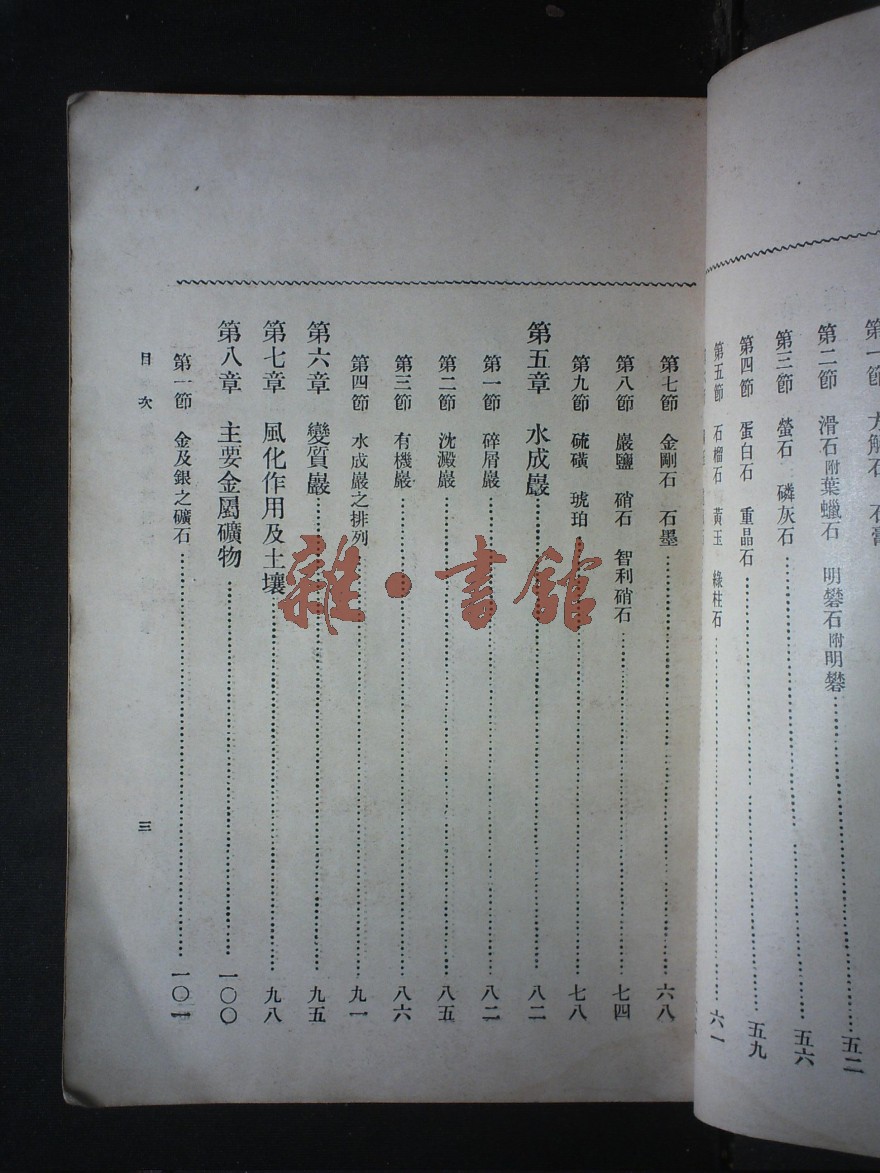 第二節 滑石附葉蠟石 明礬石附明礬 五二
第三節 螢石 磷灰石 五六
第四節 蛋白石 重晶石 五九
第五節 石榴石 黃玉 綠柱石 六一
第七節 金剛石 石墨 六八
第八節 巖鹽 硝石 智利硝石 七四
第九節 硫磺 琥珀 七八
第五章 水成巖 八二
第一節 碎屑巖 八二
第二節 沈澱巖 八五
第三節 有機巖 八六
第四節 水成巖之排列 九一
第六章 變質巖 九五
第七章 風化作用及土壤 九八
第八章 主要金屬礦物 一〇〇
第一節 金及銀之礦石 一〇一
目次 三
雜·書館